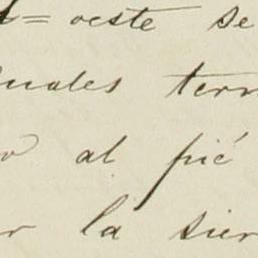 = oeste se
uales terr
al pié
r la sier